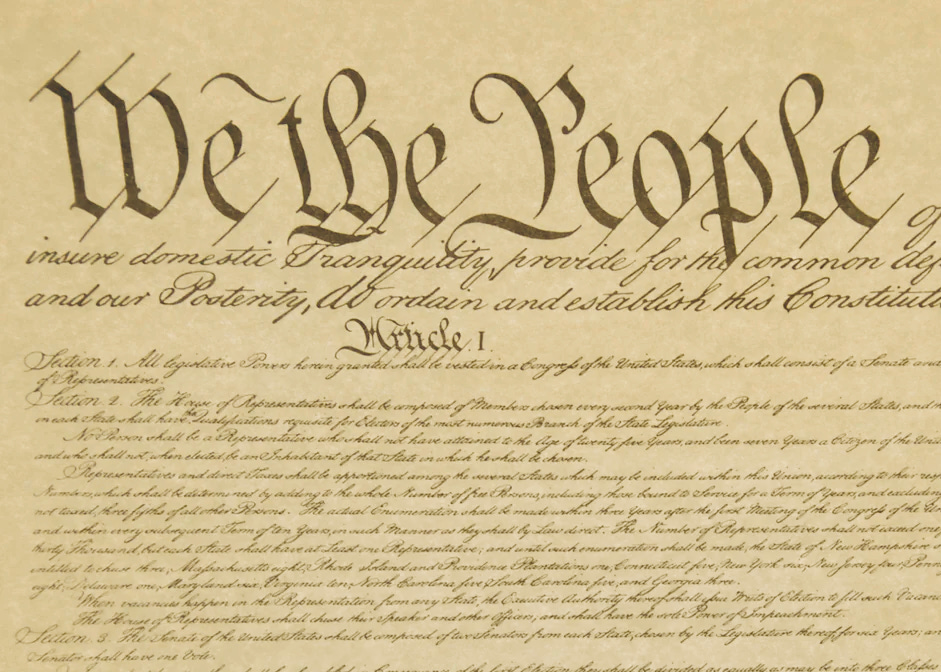 We the People of
insure domestic Tranquility, provide for the common def
and our Posterity, do ordain and establish this Constituti
Article. I.
Section. 1. All legislative Powers herein granted shall be vested in a Congress of the United States, which shall consist of a Senate and
of Representatives.
Section. 2. The House of Representatives shall be composed of Members chosen every second Year by the People of the several States, and
in each State shall have the Qualifications requisite for Electors of the most numerous Branch of the State Legislature.
No Person shall be a Representative who shall not have attained to the Age of twenty five Years, and been seven Years a Citizen of the Unit
and who shall not, when elected, be an Inhabitant of that State in which he shall be chosen.
Representatives and direct Taxes shall be apportioned among the several States which may be included within this Union, according to their resp
Numbers, which shall be determined by adding to the whole Number of free Persons, including those bound to Service for a Term of Years, and excluding
not taxed, three fifths of all other Persons. The actual Enumeration shall be made within three Years after the first Meeting of the Congress of the Un
and within every subsequent Term of ten Years, in such Manner as they shall by Law direct. The Number of Representatives shall not exceed one
thirty Thousand, but each State shall have at Least one Representative; and until such enumeration shall be made, the State of New Hampshire s
entitled to chuse three, Massachusetts eight, Rhode Island and Providence Plantations one, Connecticut five, New York six, New Jersey four, Penn
eight, Delaware one, Maryland six, Virginia ten, North Carolina five, South Carolina five, and Georgia three.
When vacancies happen in the Representation from any State, the Executive Authority thereof shall issue Writs of Election to fill such Vacanc
The House of Representatives shall chuse their Speaker and other Officers; and shall have the sole Power of Impeachment.
Section. 3. The Senate of the United States shall be composed of two Senators from each State, chosen by the Legislature thereof, for six Years; an
Senator shall have one Vote.
of the first Election, they shall be divided as equally as may be into three Classes